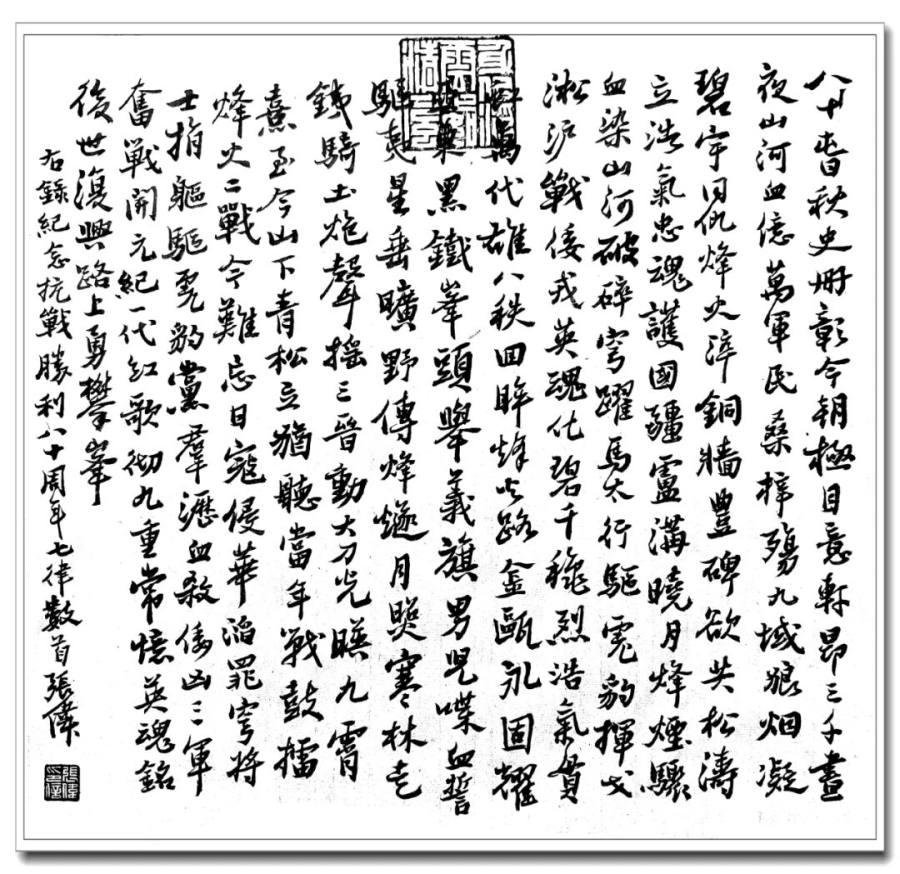 八十春秋史册彰今朝極目意軒昂三千晝
夜山河血億萬軍民桑梓殤九域狼烟凝
碧宇同仇烽火淬銅牆豐碑欲共松濤
立浩氣忠魂護國疆盧溝曉月烽煙驟
血染山河破碎穹躍馬太行驅虎豹揮戈
淞沪戰倭戎英魂化碧千秋烈浩氣貫
虹萬代雄八秩回眸烽火路金甌永固耀
黑鐵峯頭舉義旗男児喋血誓
驅夷星垂曠野傳烽燧月照寒林走
鐵騎土炮聲摇三晉動大刀光映九霄
熹至今山下青松立猶聽當年戰鼓擂
烽火二戰今難忘日寇侵華滔罪穹將
士捐軀驅虎豹黨群瀝血殺倭凶三軍
奮戰開元紀一代紅歌彻九重常憶英魂銘
後世復興路上勇攀峯
右錄紀念抗戰勝利八十周年七律數首張偉